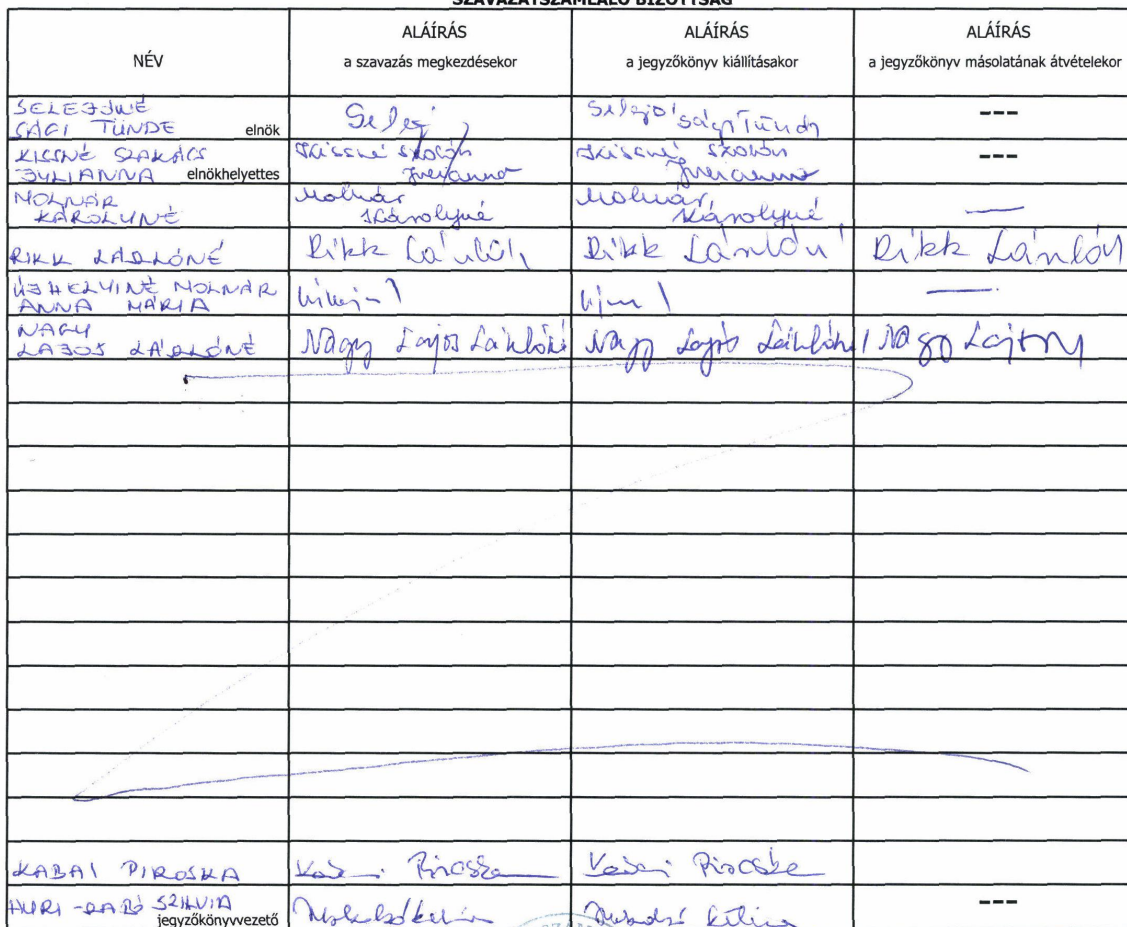 SZAVAZATSZÁMLÁLÓ BIZOTTSÁG
NÉV
ALÁÍRÁS
a szavazás megkezdésekor
ALÁÍRÁS
a jegyzőkönyv kiállításakor
ALÁÍRÁS
a jegyzőkönyv másolatának átvételekor
SELEJÓNÉ
SÁGI TÜNDE elnök
---
KISSNÉ SZAKÁCS
JULIANNA elnökhelyettes
Kissné
Kissné
---
MOLNÁR
KÁROLYNÉ
Molnár
Károlyné
Molnár
Károlyné
—
RIKK LÁSZLÓNÉ
Rikk
Rikk Lászlóné
Rikk
ÚJHELYINÉ MOLNÁR
ANNA MÁRIA
—
NAGY
LAJOS LÁSZLÓNÉ
Nagy Lajos Lászlóné
Nagy Lajos Lászlóné
Nagy
KABAI PIROSKA
Kabai Piroska
Kabai Piroska
SZILVIA
jegyzőkönyvvezető
---